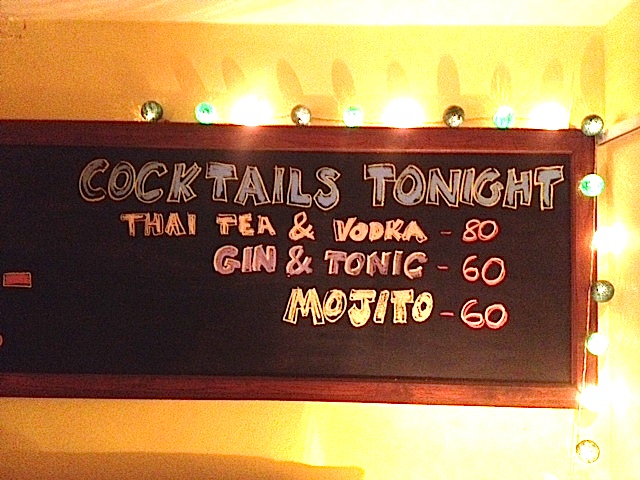 COCKTAILS TONIGHT
THAI TEA & VODKA - 80
GIN & TONIC - 60
MOJITO - 60